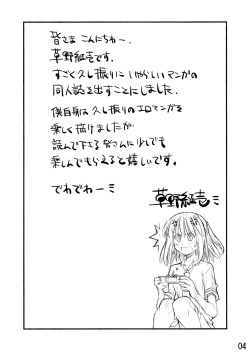 皆さま こんにちわー。
草野紅壱です。
すごく久し振りに いやらしいマンガの
同人誌を出すことにしました。
僕自身は久し振りのエロマンガを
楽しく描けましたが
読んで下さる皆さんに少しでも
楽しんでもらえると嬉しいです。
でわでわーミ
草野紅壱ミ
04